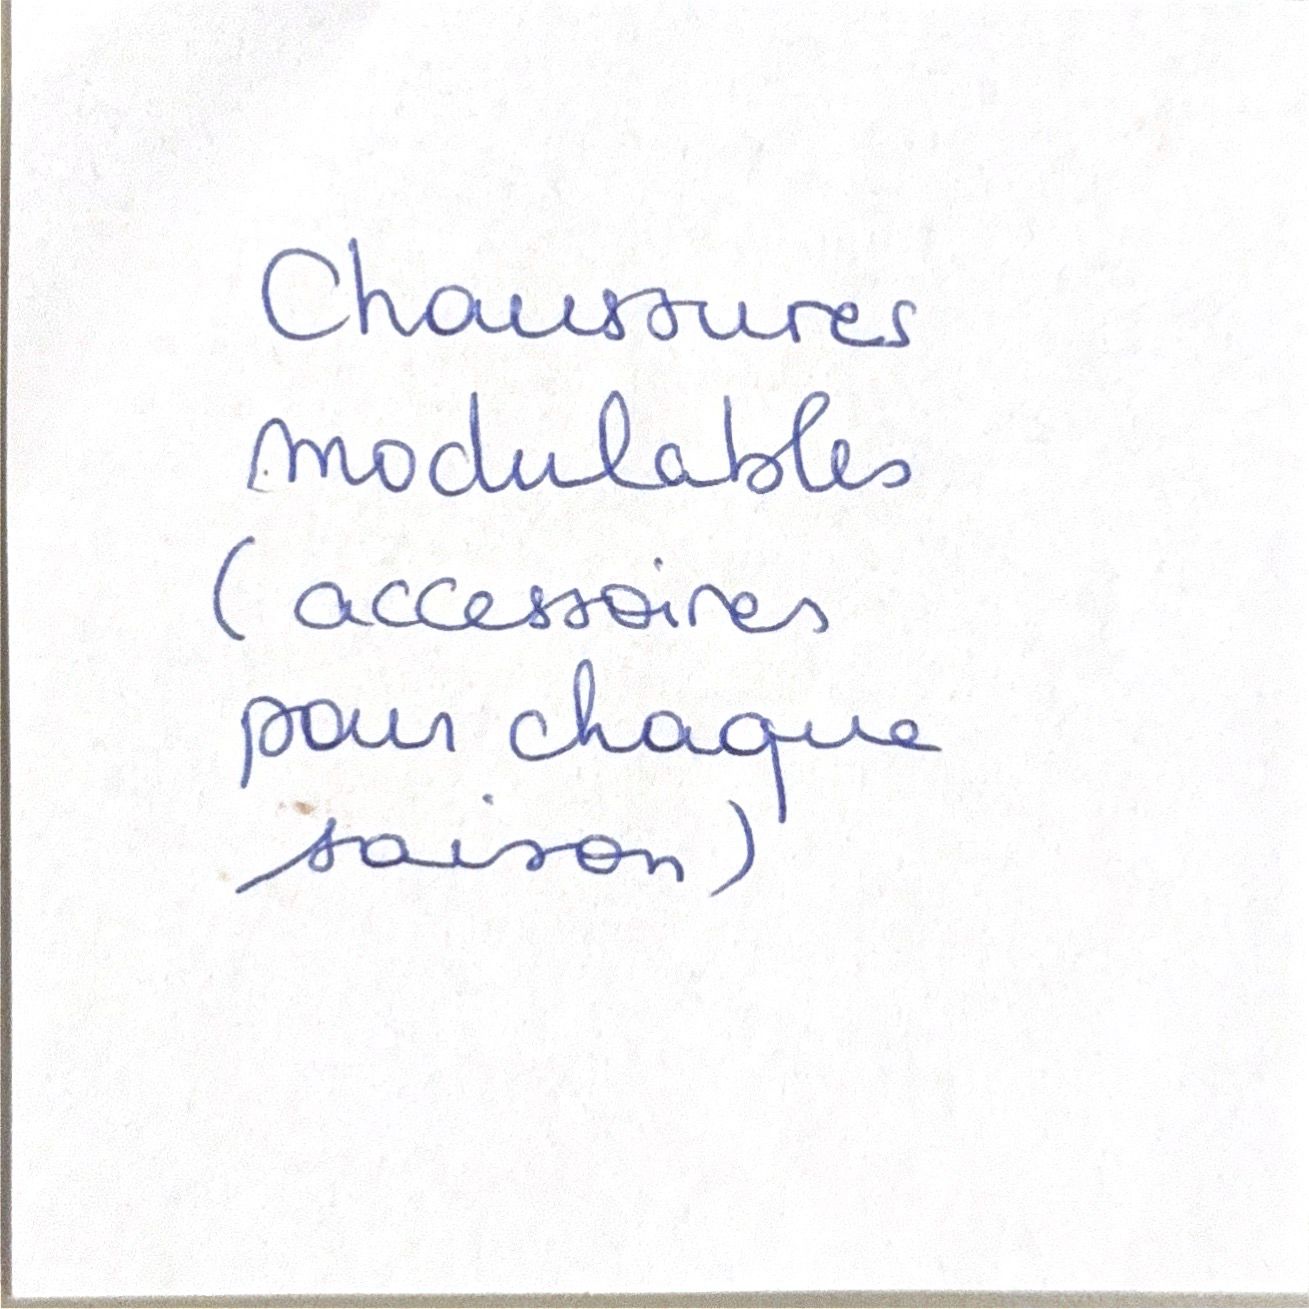 Chaussures
modulables
(accessoires
pour chaque
saison)